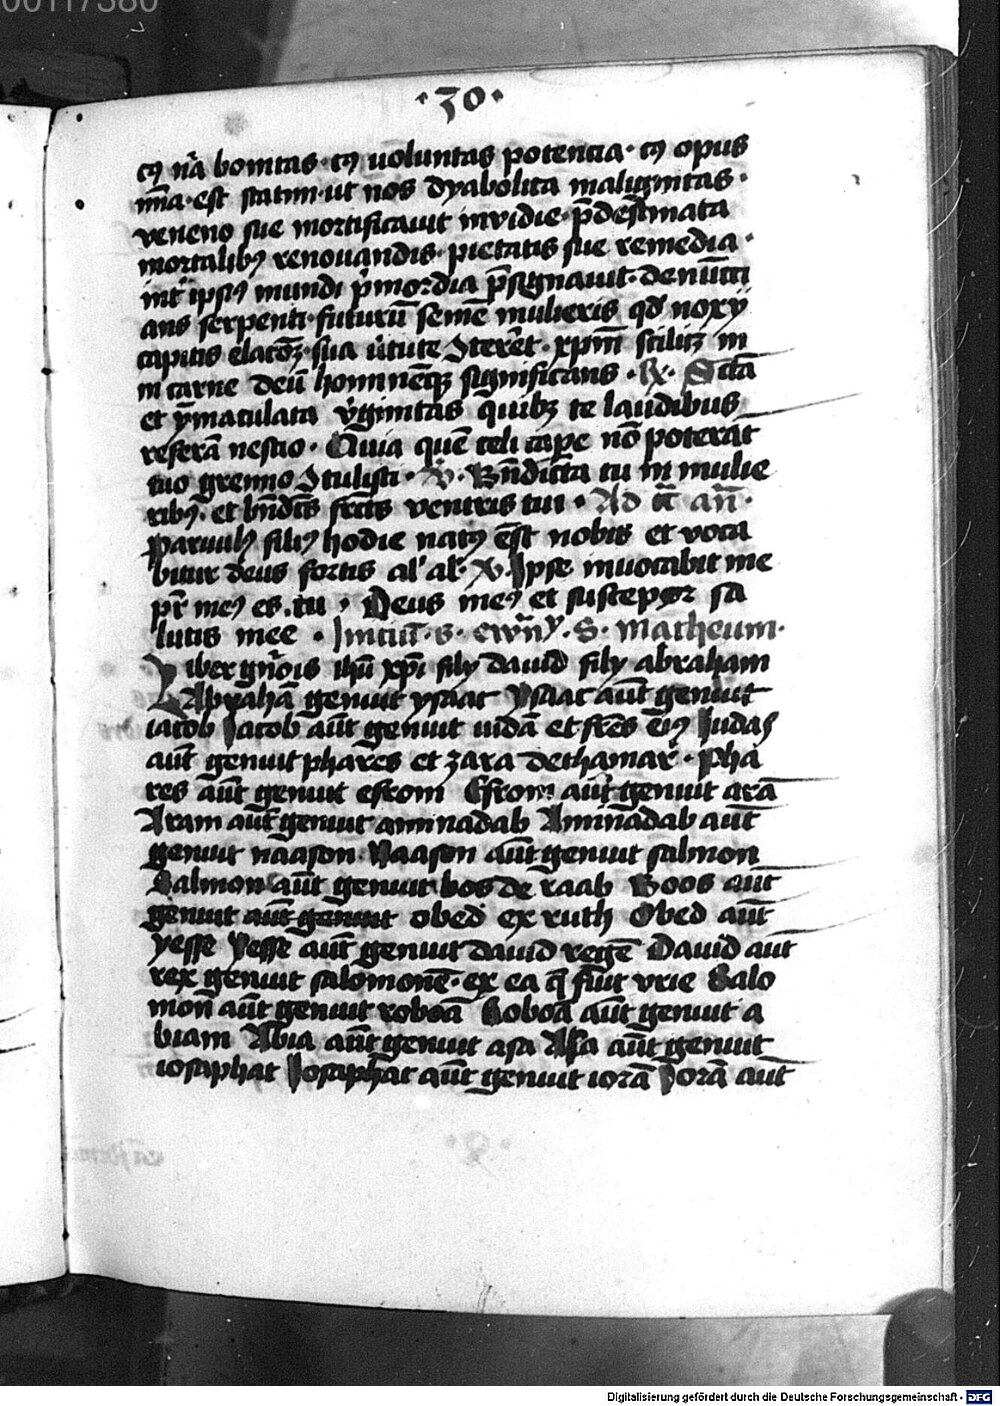 00117380
·30·
cꝰ nā bonitas · cꝰ uoluntas potencia · cꝰ opus
mīa · est statim · ut nos dyabolica malignitas ·
veneno sue mortificauit invidie · p̄destinata
mortalibꝰ renouandis · pietatis sue remedia ·
int̄ ipsiꝰ mundi p̄mordia p̄signauit · denūcci
ans serpenti · futurū semē mulieris qd̄ noxy
capitis elacōꝫ · sua v̄tute Stereret · xp̄m scilicꝫ in
in carne deū hominēqꝫ significans · ℟ · Scā
et ym̄aculata v̄ginitas quibꝫ te laudibus
referā nescio · Quia quē celi cape nō poterāt
tuo gremio Stulisti · ℣ · Bn̄dicta tu in mulie
ribꝰ · et bn̄dc̄s fructs ventris tui · Ad c̄t an̄ ·
Paruulꝰ filiꝰ hodie natꝰ est nobis et voca
bitur deus fortis al' al' · ℣ · Ipse inuocabit me
pr̄ meꝰ es · tu · Deus meꝰ et susceptor sa
lutis mee · Iniciū · s · ewn̄y · S · Matheum ·
Liber gn̄ois ihū xp̄i filij dauid filij abraham
Abrahā genuit ysaac Ysaac aūt genuit
iacob Jacob aūt genuit iudā et frēs eiꝰ Judas
aūt genuit phares et zara de thamar · Pha
res aūt genuit esrom Esrom aūt genuit arā
Aram aūt genuit aminadab Aminadab aūt
genuit naason · Naason aūt genuit salmon
Salmon aūt genuit bos de raab Boos aūt
genuit aūt genuit obed ex ruth Obed aūt
yesse Yesse aūt genuit dauid regē Dauid aūt
rex genuit salomonē · ex ea q̄ fuit vrie Salo
mon̄ aūt genuit roboā Roboā aūt genuit a
biam Abia aūt genuit asa Asa aūt genuit
iosaphat Josaphat aūt genuit iorā Jorā aūt
Digitalisierung gefördert durch die Deutsche Forschungsgemeinschaft - DFG